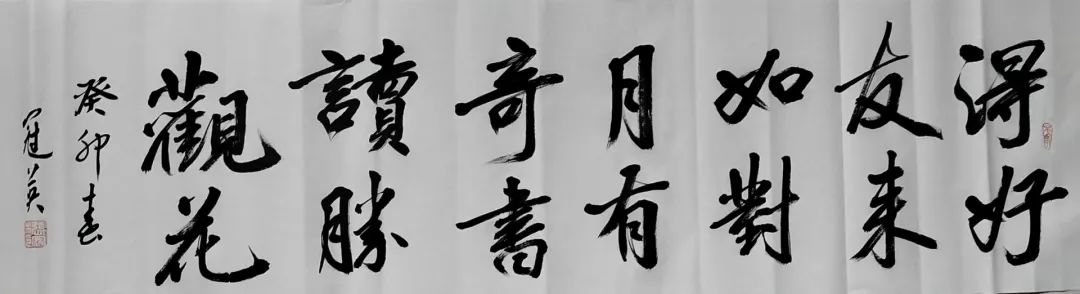 得好
友来
如對
月有
奇書
讀勝
觀花
癸卯春
冠英